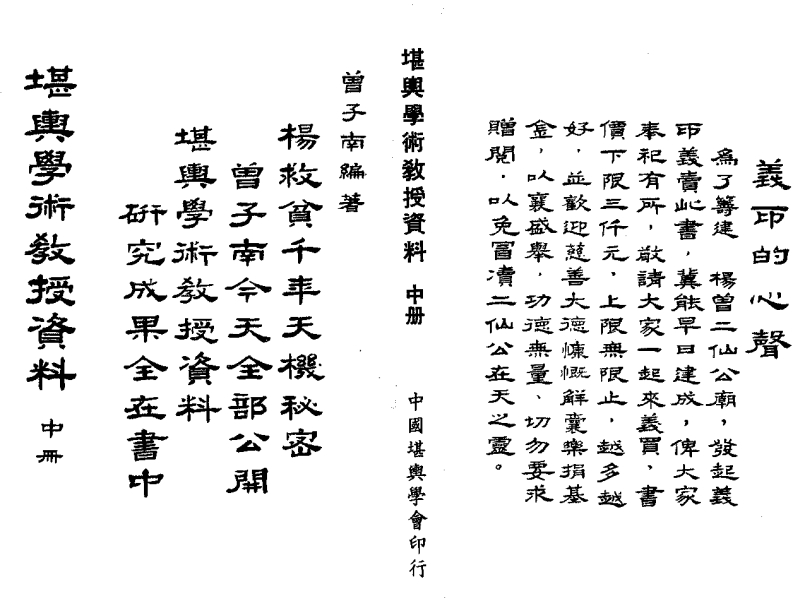 義印的心聲
為了籌建　楊曾二仙公廟，發起義
印義賣此書，冀能早日建成，俾大家
奉祀有所，敬請大家一起來義買，書
價下限三仟元，上限無限止，越多越
好，並歡迎慈善大德慷慨解囊樂捐基
金，以襄盛舉，功德無量、切勿要求
贈閱，以免冒瀆二仙公在天之靈。
堪輿學術教授資料 中册 中國堪輿學會印行
曾子南編著
楊救貧千年天機秘密
曾子南今天全部公開
堪輿學術教授資料
研究成果全在書中
堪輿學術教授資料 中冊